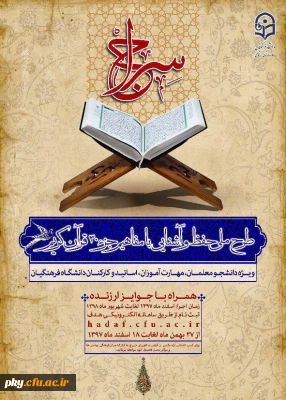 سراج
طرح ملی حفظ و آشنایی با مفاهیم جزء ۳۰ قرآن کریم
ویژه دانشجو معلمان، مهارت آموزان، اساتید و کارکنان دانشگاه فرهنگیان
همراه با جوایز ارزنده
زمان اجرا: اسفند ماه ۱۳۹۷ لغایت شهریور ماه ۱۳۹۸
ثبت نام از طریق سامانه الکترونیکی هدف
hadaf.cfu.ac.ir
از ۲۷ بهمن ماه لغایت ۱۸ اسفند ماه ۱۳۹۷
pky.cfu.ac.ir